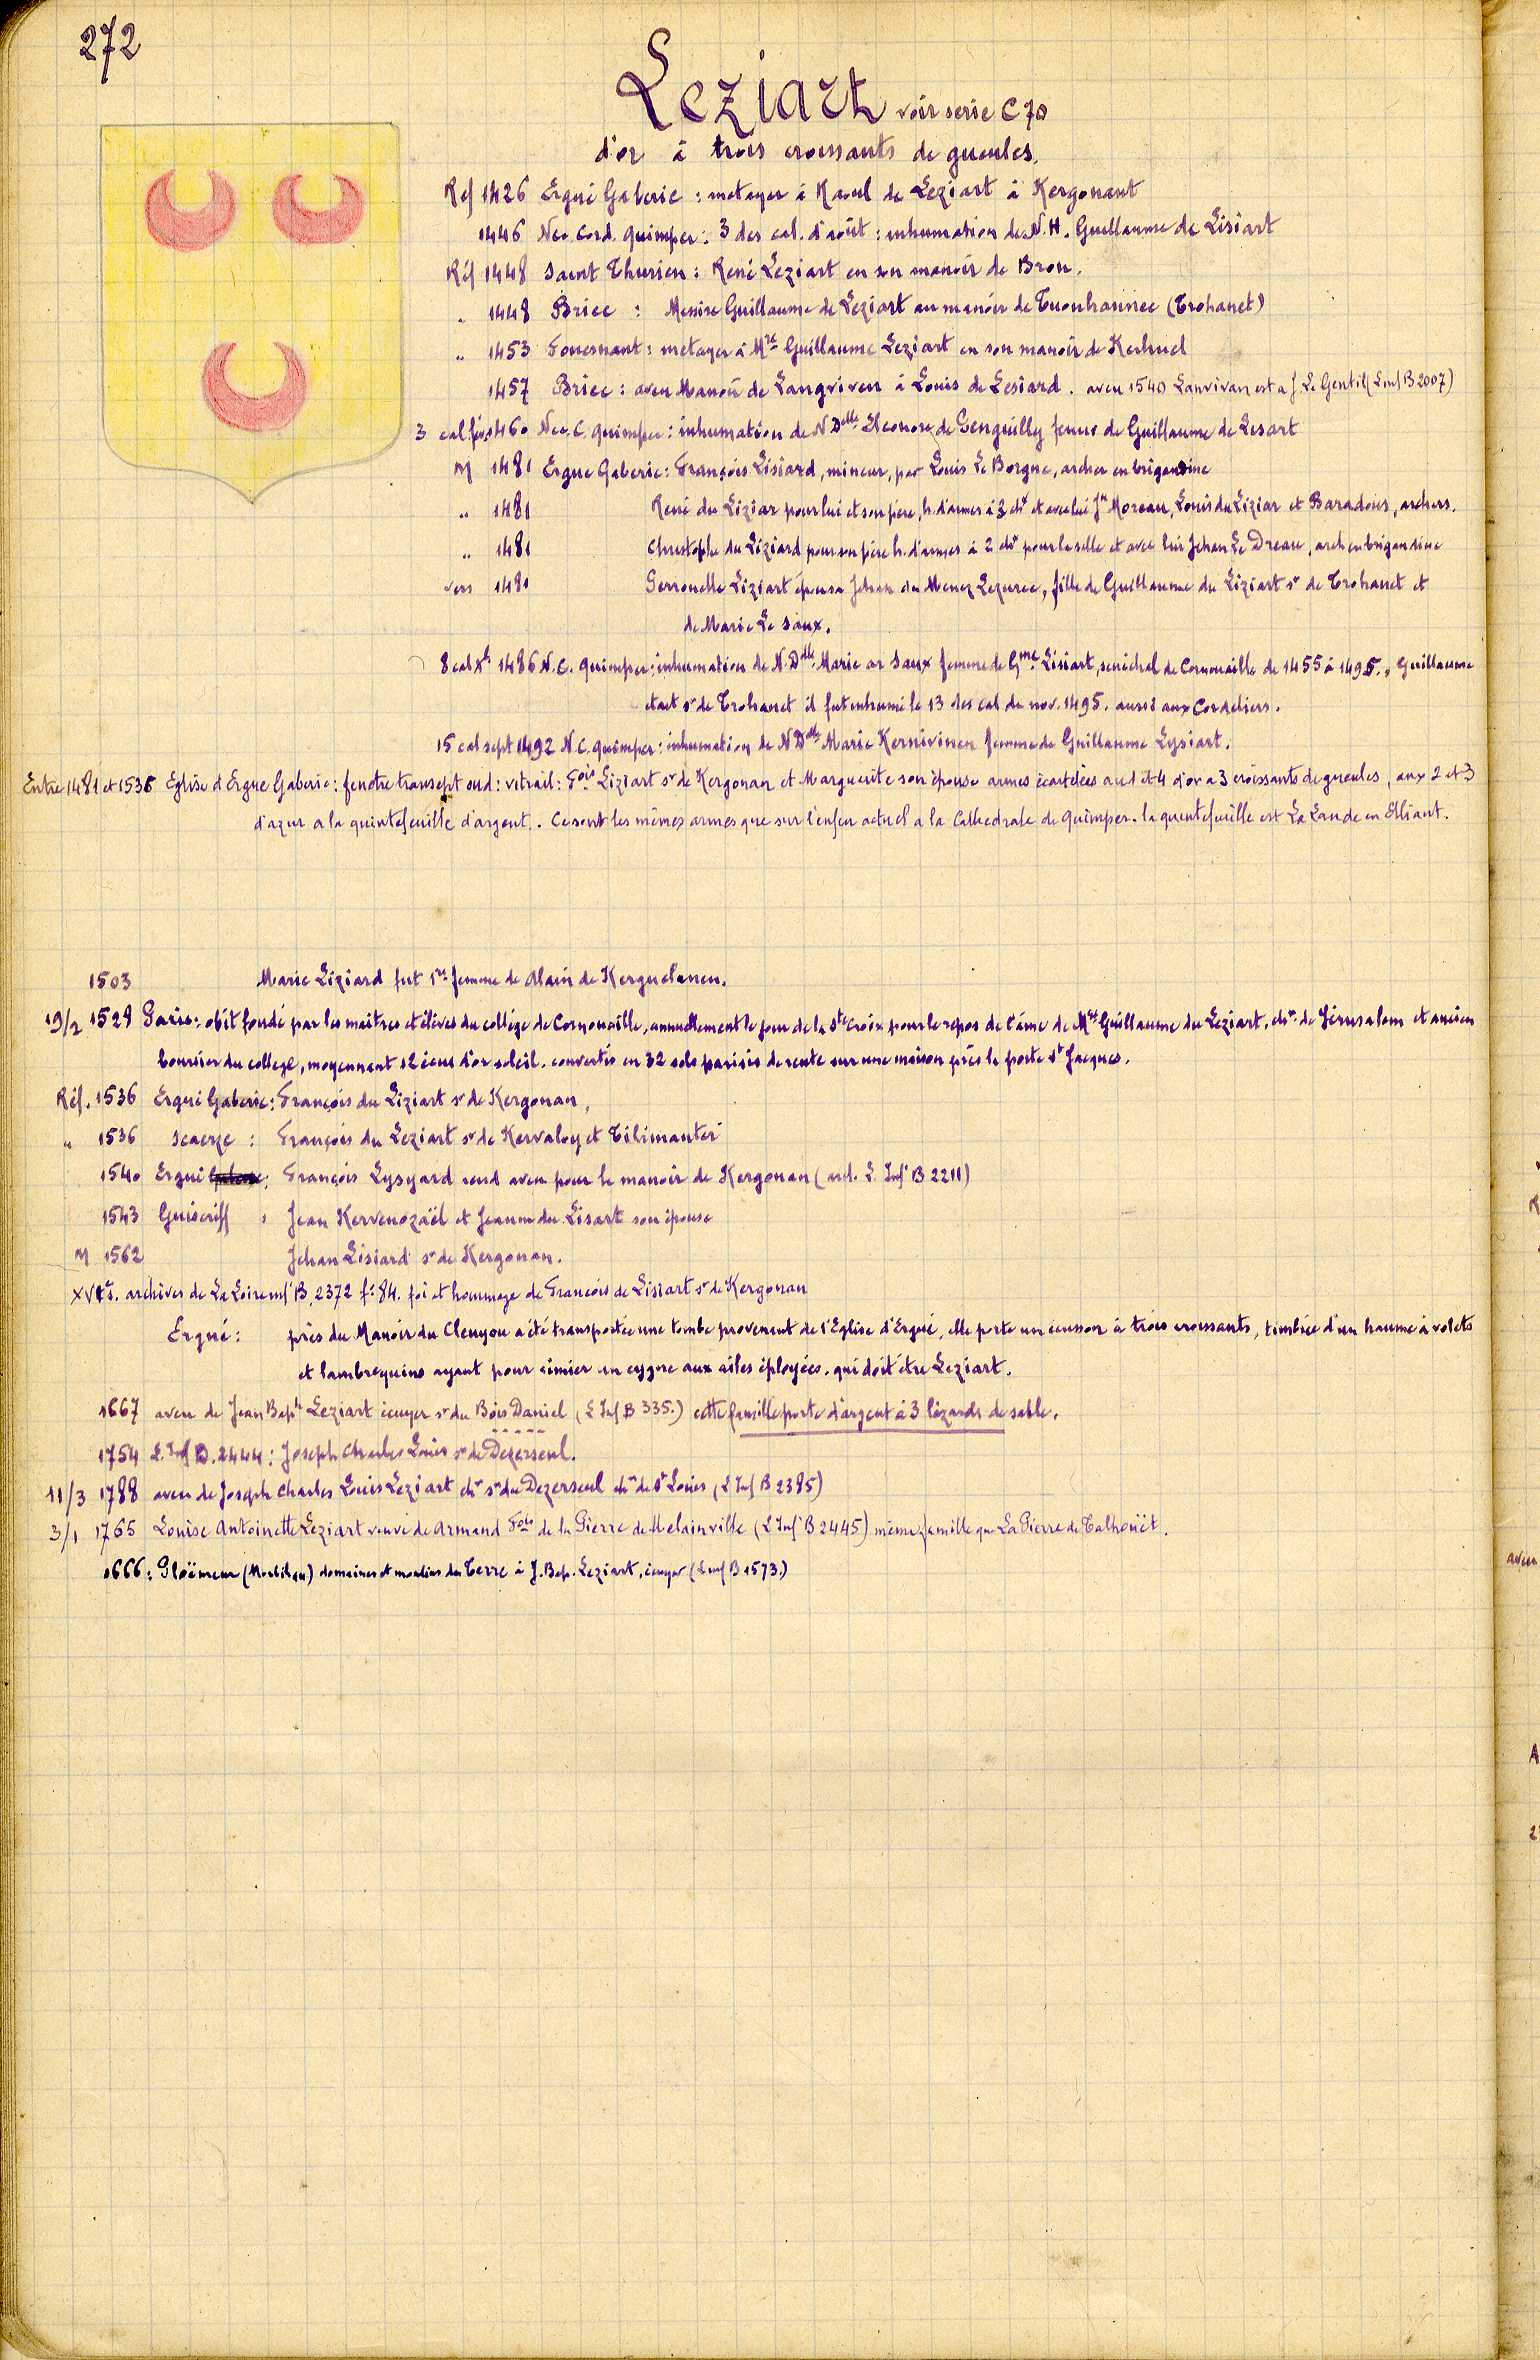 272
Leziart voir serie C 70
d'or à trois croissants de gueules.
Ref 1426 Ergué Gaberic : metayer à Raoul de Leziart à Kergonant
1446 Nec. Cord. Quimper : 3 des cal. d'août : inhumation de N.H. Guillaume de Lisiart
Réf 1448 Saint Thurien : René Leziart en son manoir de Bron.
" 1448 Briec : Messire Guillaume de Leziart au manoir de Tuonhannec (Trohanet)
" 1453 Fouesnant : metayer à Mre Guillaume Leziart en son manoir de Kerhuel
1457 Briec : aveu Manoir de Langviven à Louis de Lesiard. aveu 1540 Lanvivan est a J. Le Gentil (L inf B 2007)
3 cal. fév 1460 Nec. C. Quimper : inhumation de N Delle Eleonore de Penguilly femme de Guillaume de Lesart
M 1481 Ergue Gaberic : François Lisiard, mineur, par Louis Le Borgne, archer en brigandine
" 1481 René du Liziar pour lui et son père, h. d'armes à 3 chx et avec lui Jn Moreau, Louis du Liziar et Baradous, archers.
" 1481 Christophe du Liziard pour son père h. d'armes à 2 chx pour la selle et avec lui Jehan Le Dreau, arch en brigandine
vers 1480 Perronelle Liziart épousa Jehan du Menez Lezurec, fille de Guillaume du Liziart sr de Trohanet et
de Marie Le Saux.
8 cal Xb 1486 N.C. Quimper : inhumation de N. Dlle Marie ar Saux femme de Gme Lisiart, sénéchal de Cornouaille de 1455 à 1495. Guillaume
était sr de Trohanet il fut inhumé le 13 des cal de nov. 1495. aussi aux Cordeliers.
15 cal sept 1492 N.C. Quimper : inhumation de N Dlle Marie Kernivinen femme de Guillaume Lysiart.
Entre 1481 et 1536 Eglise d'Ergue Gaberic : fenetre transept sud : vitrail : Fois Liziart sr de Kergonan et Marguerite son épouse armes écartelées au 1 et 4 d'or a 3 croissants de gueules, aux 2 et 3
d'azur a la quintefeuille d'argent. Ce sont les mêmes armes que sur l'enfeu actuel a la Cathedrale de Quimper. la quintefeuille est La Lande en Elliant.
1503 Marie Liziard fut 1re femme de Alain de Kerguelenen.
19/2 1528 Paris : obit fondé par les maitres et élèves du collège de Cornouaille, annuellement le jour de la Ste Croix pour le repos de l'âme de Mre Guillaume du Leziart, chr. de Jérusalem et ancien
boursier du college, moyennant 12 écus d'or soleil. convertis en 32 sols parisis de rente sur une maison près la porte St Jacques.
Réf. 1536 Ergué Gaberic : François du Liziart sr de Kergonan,
" 1536 Scaerze : François du Leziart sr de Kervaloy et Tilimanter
1540 Ergué Gaberic : François Lysyard rend aveu pour le manoir de Kergonan (arch. L. Inf B 2211)
1543 Guiscriff : Jean Kervenozaël et Jeanne du Lisart son épouse
M 1562 Jehan Lisiard sr de Kergonan.
XVIe s. archives de La Loire inf B. 2372 f. 84. foi et hommage de François de Lisiart sr de Kergonan
Ergué : près du Manoir du Cleuyou a été transportée une tombe provenant de l'Eglise d'Ergué, elle porte un écusson à trois croissants, timbrée d'un heaume à volets
et lambrequins ayant pour cimier un cygne aux ailes éployées. qui doit être Leziart.
1667 aveu de Jean Bapte Leziart écuyer sr du Bois Daniel (L Inf B 335.) cette famille porte d'argent à 3 lézards de sable.
1754 L. Inf B. 2444 : Joseph Charles Louis sr de Dezerseul.
11/3 1788 aveu de Joseph Charles Louis Leziart chr sr du Dezerseul chr de St Louis (L Inf B 2385)
3/1 1765 Louise Antoinette Leziart veuve de Armand Fois de la Pierre de Melainville (L Inf B 2445) même famille que La Pierre de Talhouët.
1666 : Ploëmeur (Morbihan) domaines et moulins du Terre à J. Bap. Leziart, écuyer (L inf B 1573.)
aveu